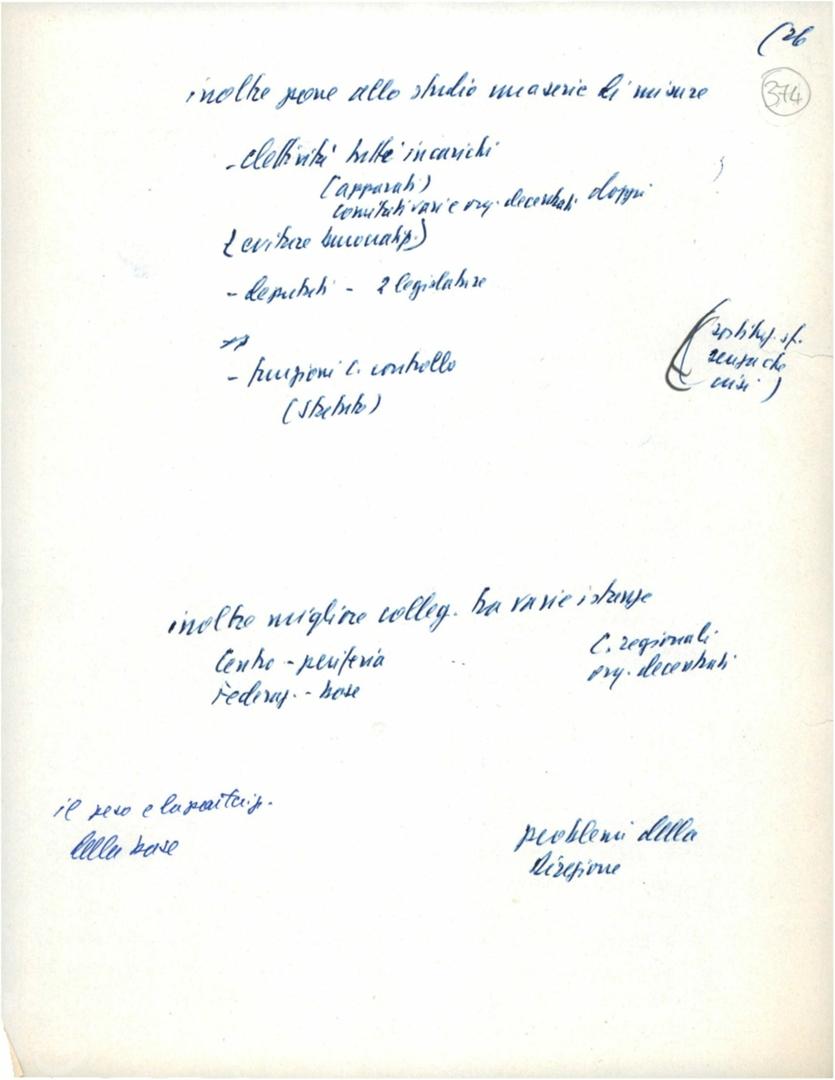 (26
374
inoltre pone allo studio una serie di misure
- elettività tutti incarichi
(apparati)
comitati varie org. decentrati doppi
(evitare burocratizz.)
- deputati - 2 legislature
- funzioni C. controllo
(Statuto)
senza che
inoltre migliore colleg. tra varie istanze
Centro - periferia
Federaz. - base
C. regionali
org. decentrati
il peso e la partecip.
della base
problemi della
Direzione